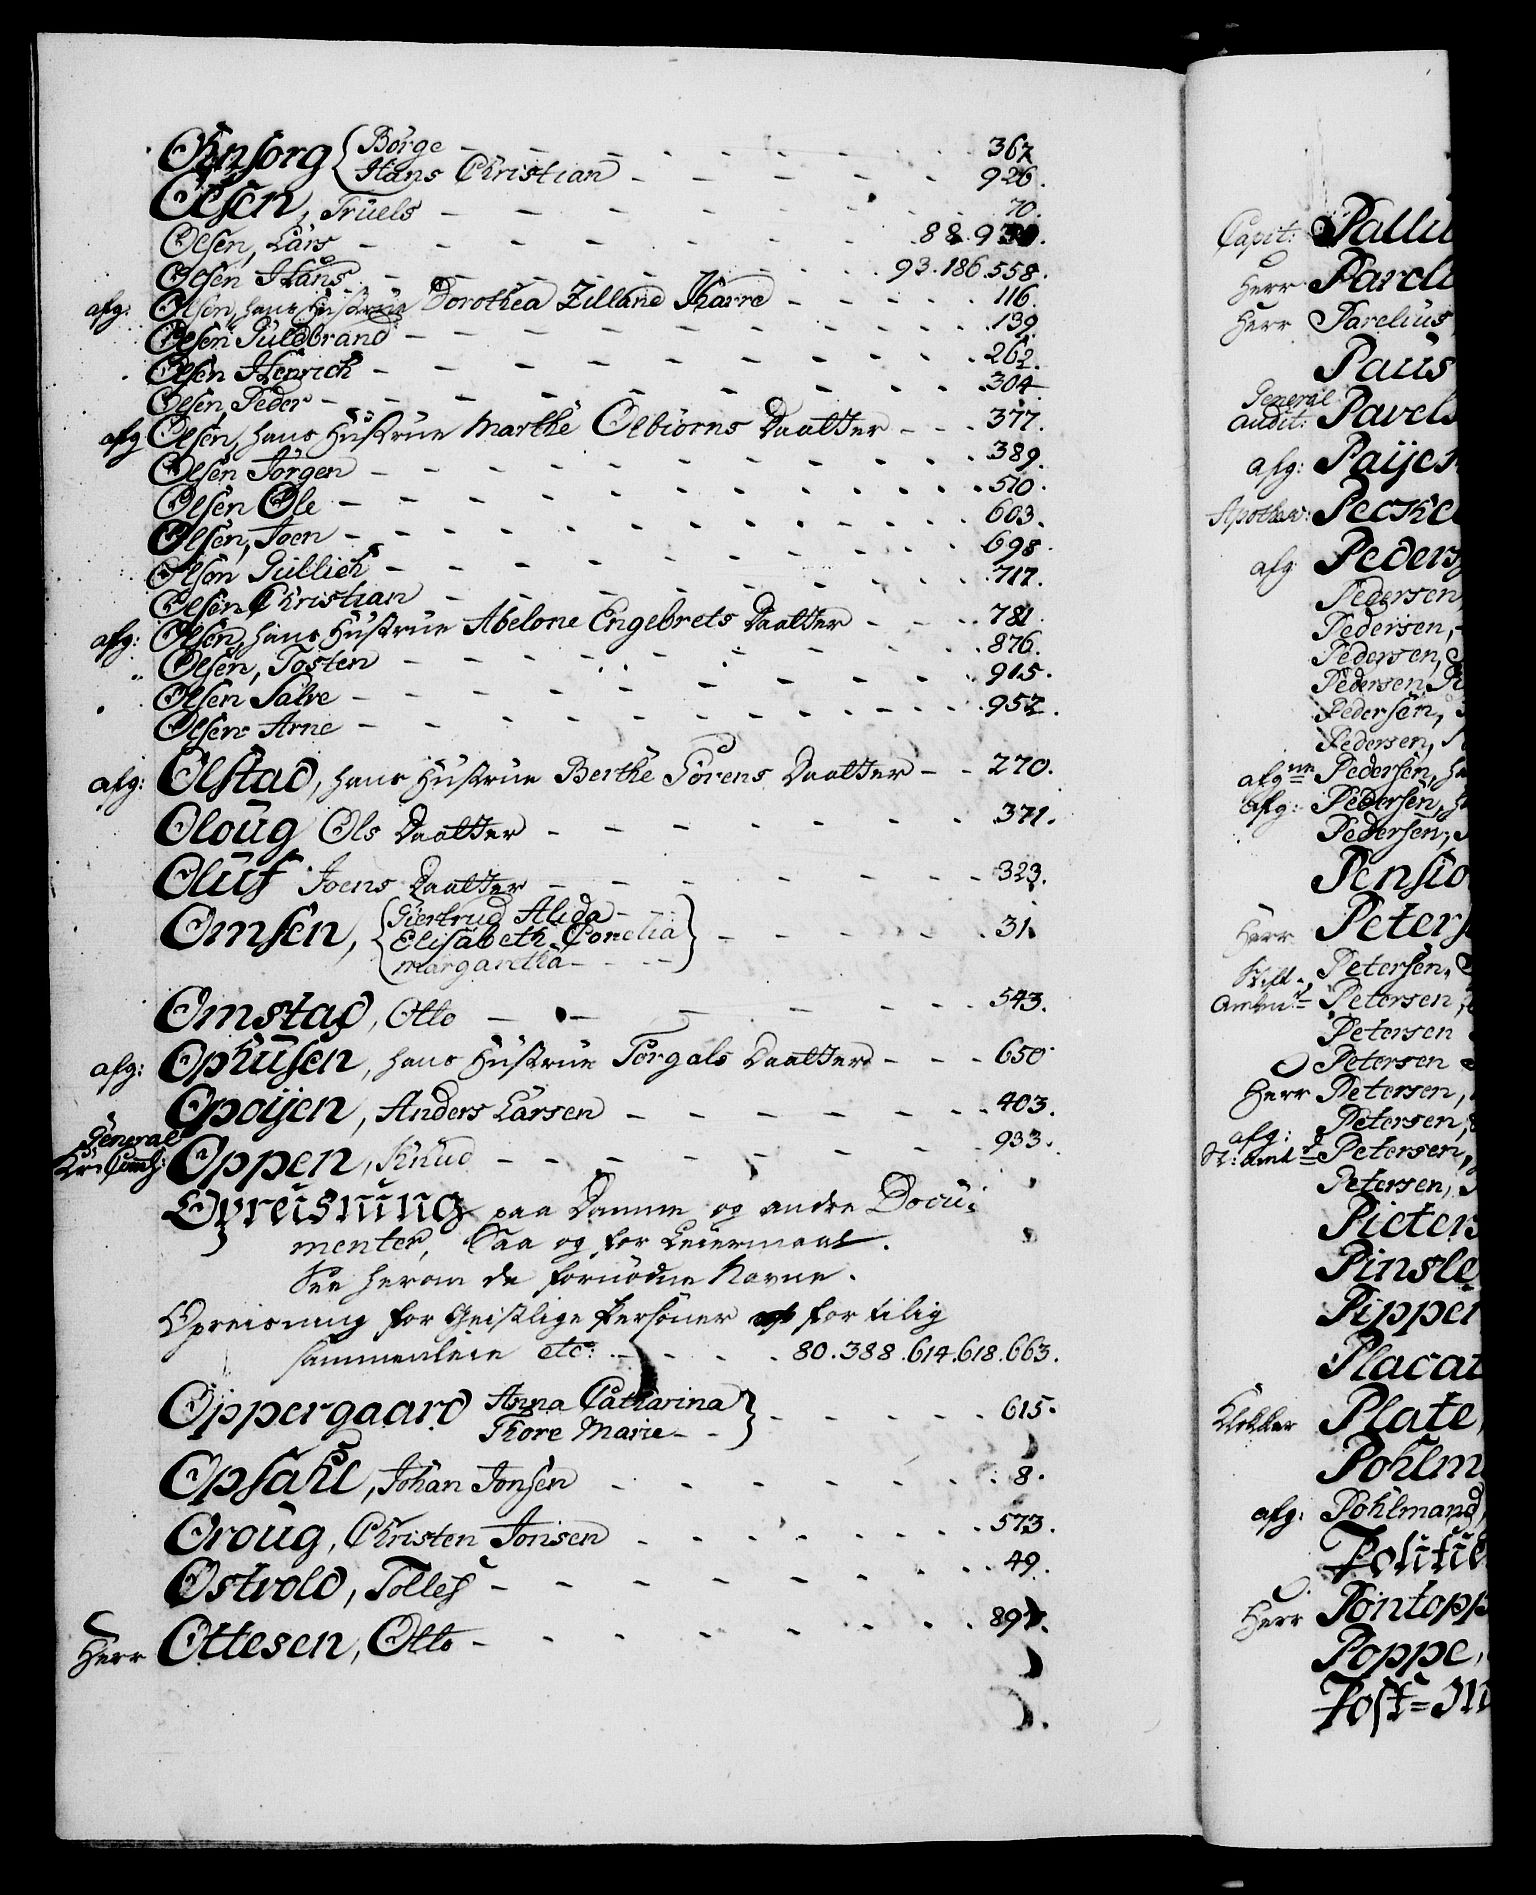 Ohnsorg { Börge - - - - - - - 367
Hans Christian - - - - 926.
Olsen, Truels - - - - - - - 70.
Olsen, Lars - - - - - - 88.930.
Olsen Hans - - - - - - 93.186.558.
afg: Olsen, hans Hustrue Dorothea Zilland Kharre - - - - 116.
Olsen Guldbrand - - - - - - - 139.
Olsen Henrich - - - - - - - 262.
Olsen, Peder - - - - - - - 304
afg Olsen, hans Hustrue Marthe Olbiorns Daatter - - - 377.
Olsen Jörgen - - - - - - - 389.
Olsen Ole - - - - - - - 510.
Olsen, Joen - - - - - - - 603.
Olsen Gullich - - - - - - - 698.
Olsen Christian - - - - - - - 717.
afg: Olsen, hans Hustrue Abelone Engebrets Daatter - - - 781.
Olsen, Tosten - - - - - - - 876.
Olsen Salve - - - - - - - 915.
Olsen Arne - - - - - - - 957.
afg: Olstad, hans Hustrue Berthe Sörens Daatter - - 270.
Oloug Ols Daatter - - - - - - 371.
Oluf Joens Daatter - - - - - - 323.
Omsen, { Giertrud Alida -
Elisabeth Conelia } - - - - - 31.
Margaretha - - -
Omstad, Otto - - - - - - 543.
afg: Ophusen, hans Hustrue Torgals Daatter - - - 650
Opoijen, Anders Larsen - - - - - - 403.
General
Kr: Comm: Oppen, Knud - - - - - - - 933.
Opreisning paa Domme og andre Docu-
menter, Saa og for Leiermaal.
See herom de fornödne Navne.
Opreisning for Geistlige Persóner for tilig
sammenleie etc: - - - - 80.388.614.618.663.
Oppergaard Anna Catharina
Thore Marie - - } - - - - - 615.
Opsahl, Johan Jonsen - - - - - - 8.
Oroug, Christen Jonsen - - - - - - 573.
Ostvold, Tollef - - - - - - - 49.
Herr Ottesen, Otto - - - - - - - 897.
Capit: Pallu
Herr Parcli
Herr Parelius
Paus
General
Audit: Pavels
afg: Paijcs
Apothek: Pecke
afg Peders
Pedersen,
Pedersen,
Pedersen,
Pedersen,
Pedersen,
Pedersen,
afgne Pedersen, ha
afg: Pedersen, h
Pedersen,
Pensio
Herr Peters
Stift Petersen,
Amtm: Petersen,
Petersen
Petersen
Herr Petersen,
afg: Petersen,
St: Amt: Petersen,
Petersen,
Pieters
Pinsle
Pipper
Placat
Klokker Plate,
Pohlm
afg: Pohlmand,
Politie
Herr Pontopp
Poppe,
Post=M